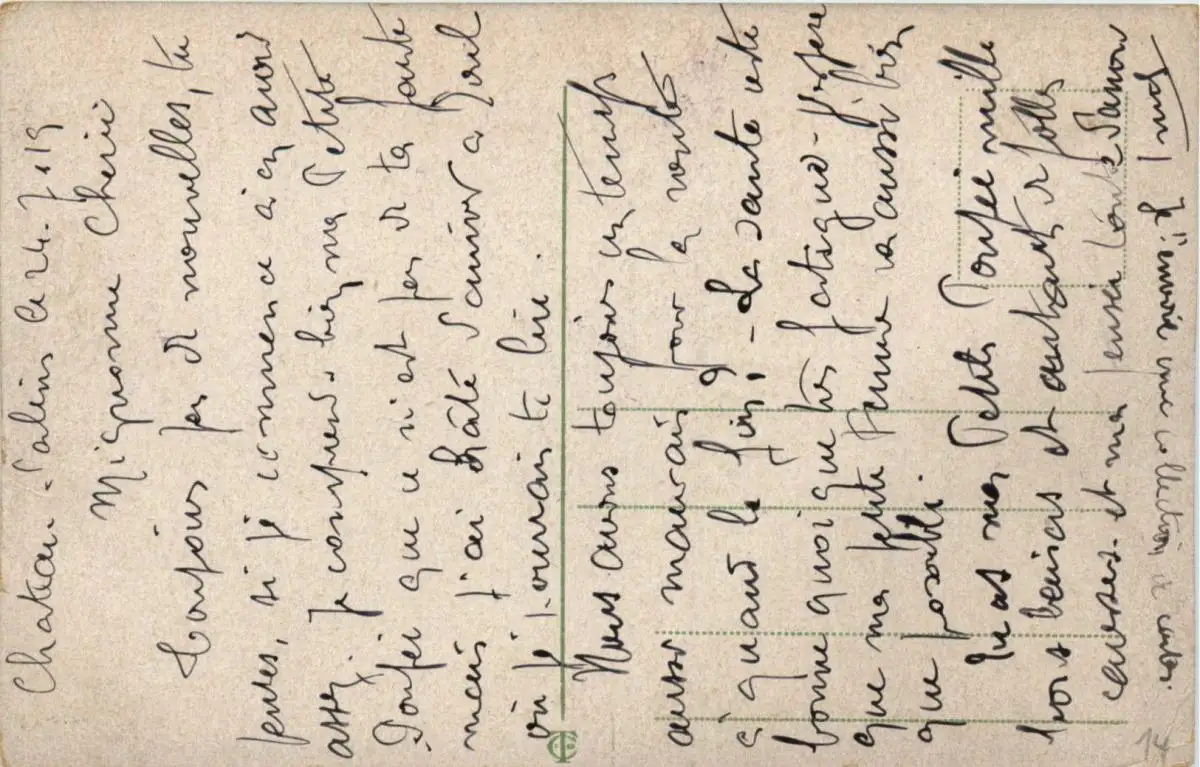 Chateau-Salins le 24.7.19
Mignonne Chérie
Toujours pas de nouvelles, tu
penses, si je commence à en avoir
assez. Je comprends bien ma Petite
Poupée que ce n'est pas de ta faute
mais j'ai hâte d'arriver à
où je pourrais te lire.
Nous avons toujours un temps
aussi mauvais pour la route
à quand la fin, - La santé est
bonne quoique très fatigué - J'espère
que ma petite Femme va aussi bien
que possible.
mes Petits Poupée mille
bons baisers et autant de folles
caresses et ma pensée toute
"serons" collection
14